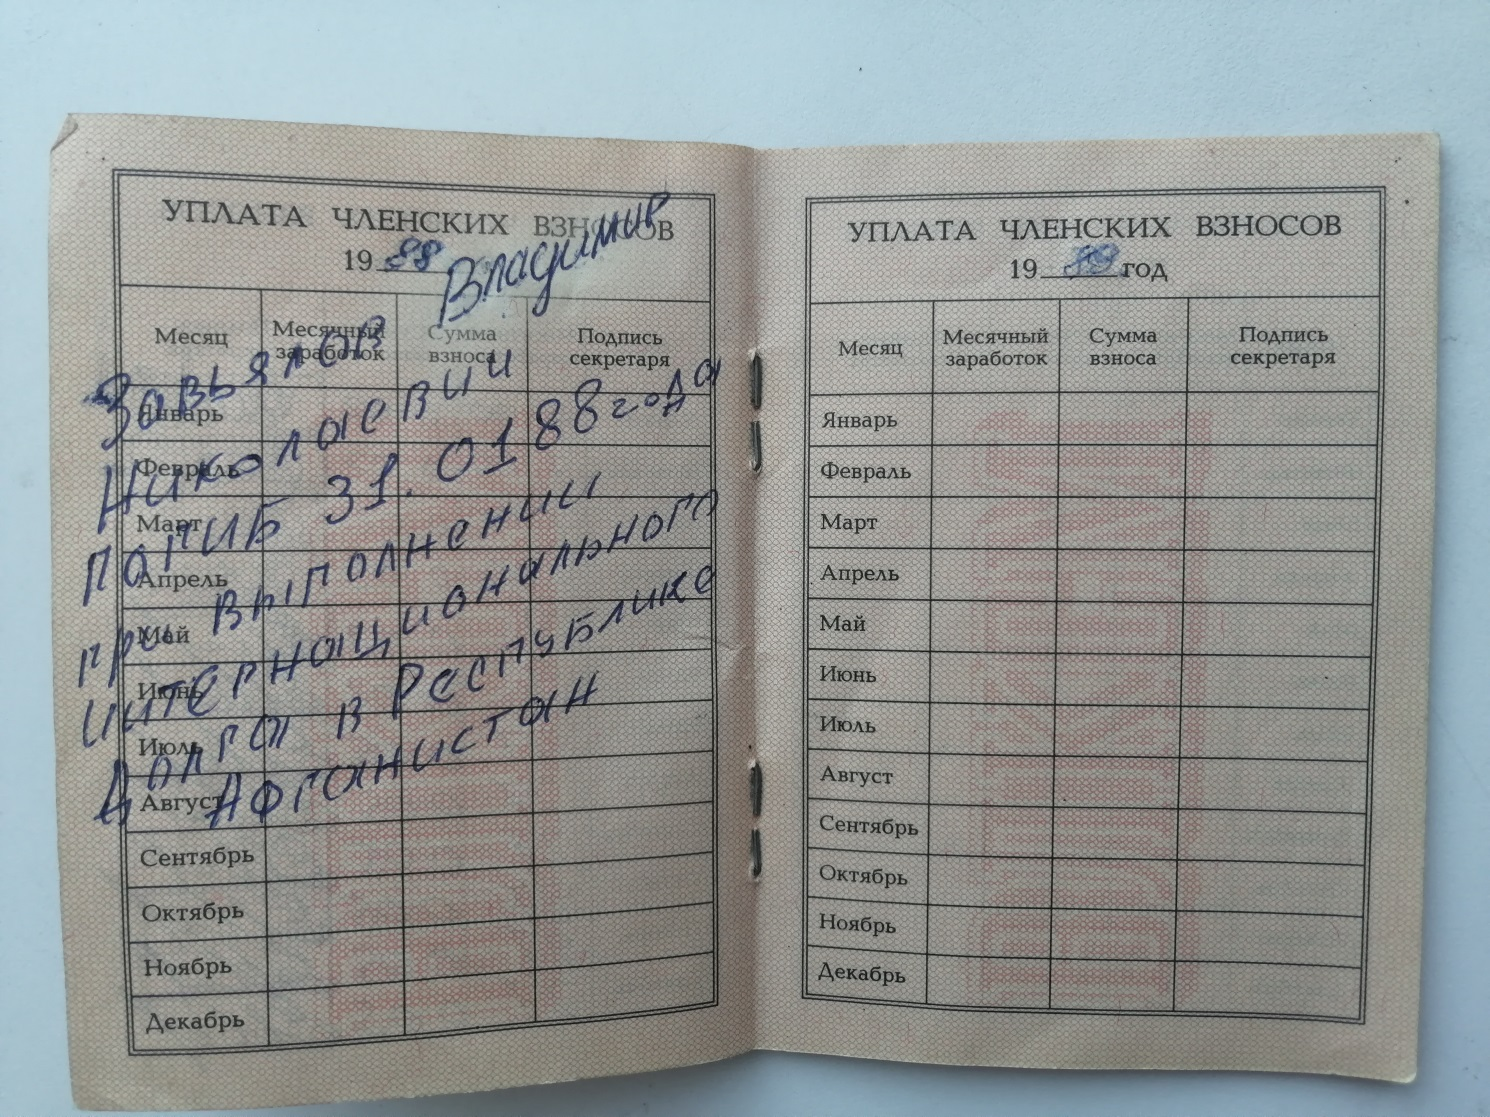 УПЛАТА ЧЛЕНСКИХ ВЗНОСОВ
1988
Месяц Месячный заработок Сумма взноса Подпись секретаря
Январь
Февраль
Март
Апрель
Май
Июнь
Июль
Август
Сентябрь
Октябрь
Ноябрь
Декабрь
Завьялов Владимир
Николаевич
погиб 31.0188 года
при выполнении
интернационального
Долга в Республике
Афганистан
УПЛАТА ЧЛЕНСКИХ ВЗНОСОВ
19 год
Месяц Месячный заработок Сумма взноса Подпись секретаря
Январь
Февраль
Март
Апрель
Май
Июнь
Июль
Август
Сентябрь
Октябрь
Ноябрь
Декабрь